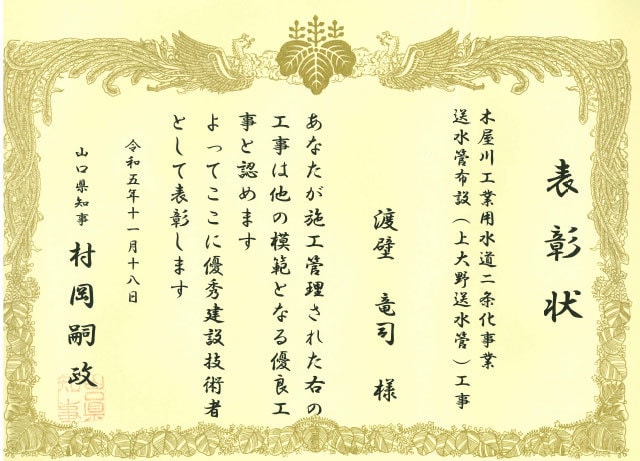 表彰状
木屋川工業用水道二条化事業
送水管布設（上大野送水管）工事
渡壁 竜司 様
あなたが施工管理された右の
工事は他の模範となる優良工
事と認めます
よってここに優秀建設技術者
として表彰します
令和五年十一月十八日
山口県知事 村岡嗣政